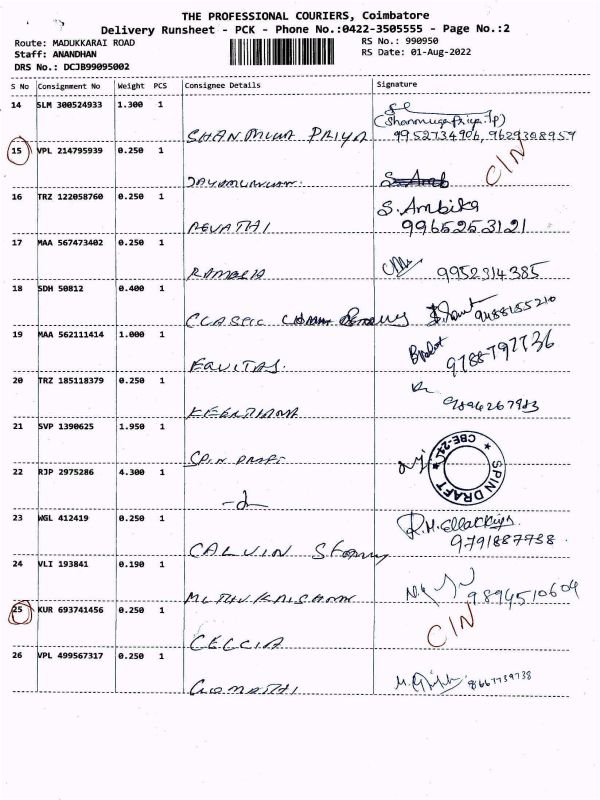 THE PROFESSIONAL COURIERS, Coimbatore
Delivery Runsheet - PCK - Phone No.:0422-3505555 - Page No.:2
Route: MADUKKARAI ROAD
RS No.: 990950
Staff: ANANDHAN
RS Date: 01-Aug-2022
DRS No.: DCJB99095002
S No Consignment No Weight PCS Consignee Details Signature
14 SLM 300524933 1.300 1
(Shanmuga Priya.Tp)
SHANMUGA PRIYA 9952734906, 9629328959
15 VPL 214795939 0.250 1
C/N
16 TRZ 122058760 0.250 1
S.Ambika
REVATHI 9965253121
17 MAA 567473402 0.250 1
9952314385
18 SDH 50812 0.400 1
CLASSIC 9488155210
19 MAA 562111414 1.000 1
EQUITAS. 9788797736
20 TRZ 185118379 0.250 1
KEERTHANA 9894267983
21 SVP 1390625 1.950 1
SPIN DRAFT
CBE-24
SPIN DRAFT
22 RJP 2975286 4.300 1
23 WGL 412419 0.250 1
R.M.Ellakkiya
CALVIN 9791887738
24 VLI 193841 0.190 1
MUTHUKRISHNAN 9894510604
25 KUR 693741456 0.250 1
C/N
CECCIA
26 VPL 499567317 0.250 1
GOMATHI 8667739738